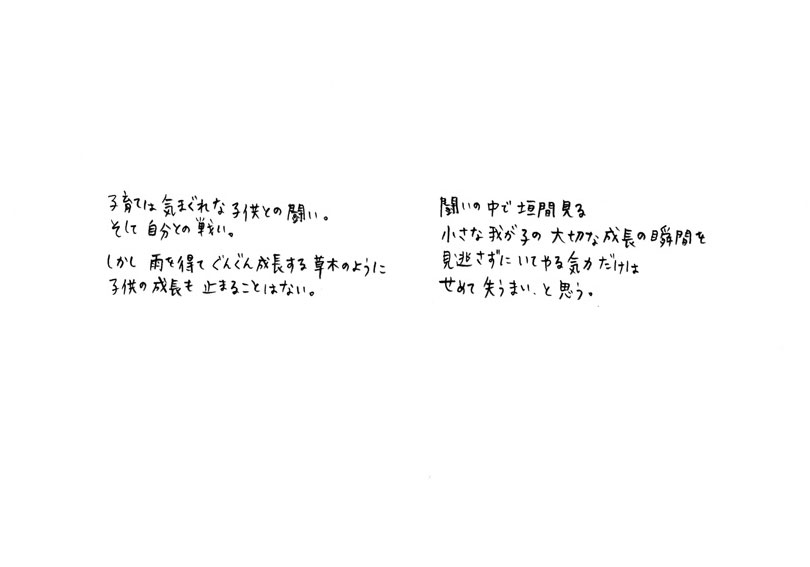 子育ては気まぐれな子供との闘い。
そして自分との戦い。
しかし 雨を得て ぐんぐん成長する草木のように
子供の成長も 止まることはない。
闘いの中で 垣間見る
小さな我が子の 大切な成長の瞬間を
見逃さずに いてやる気力だけは
せめて 失うまい、と思う。